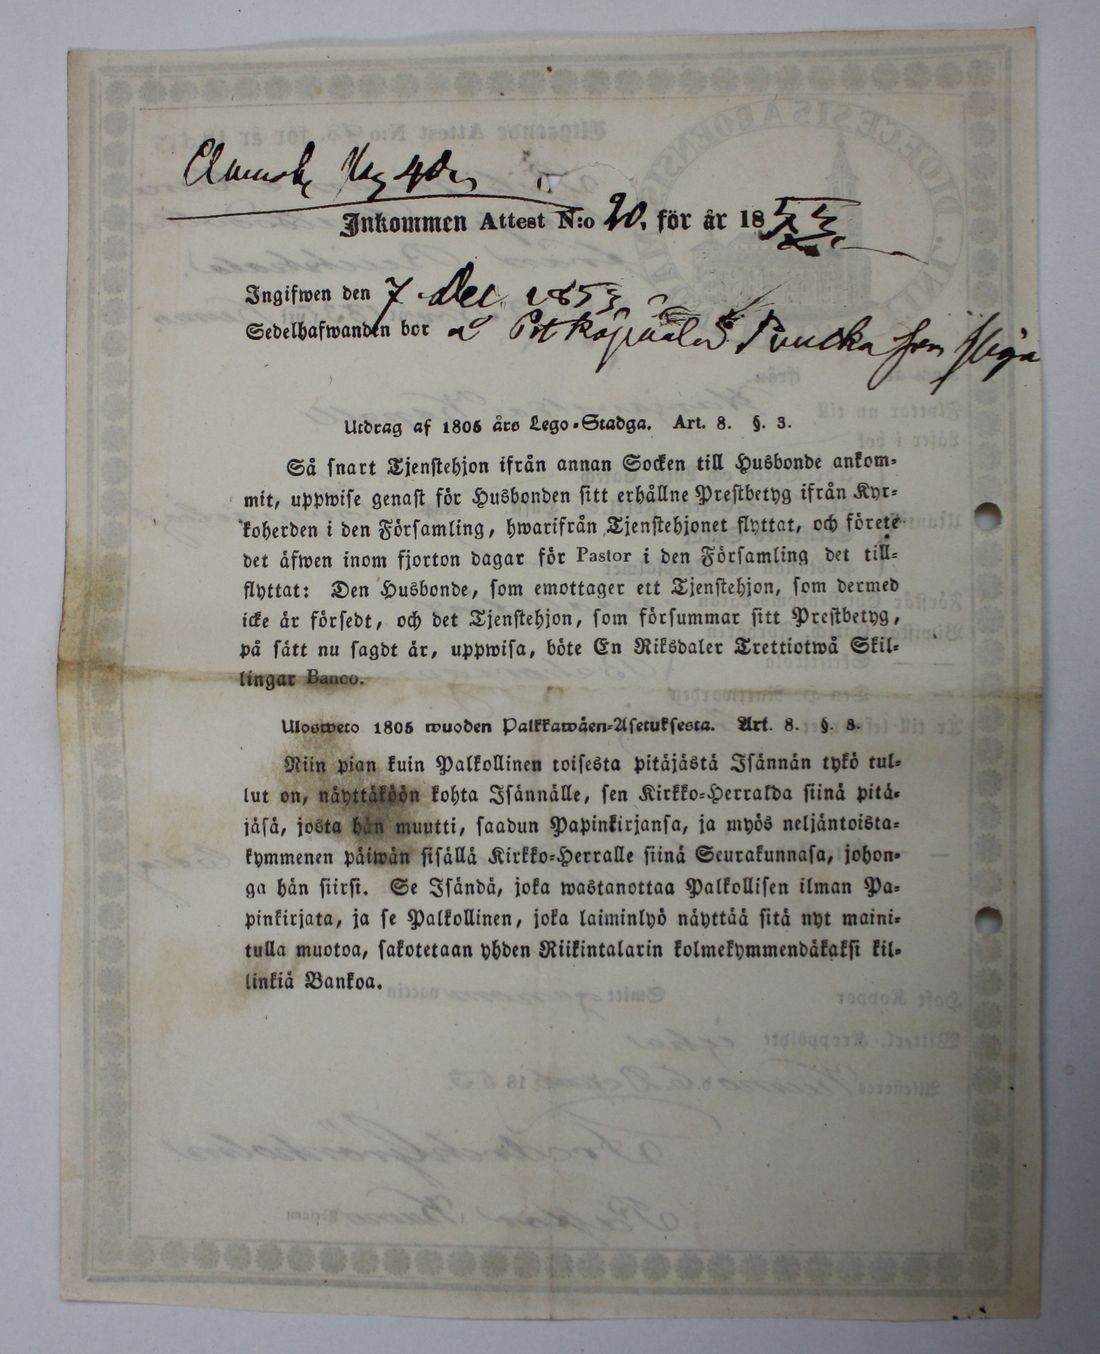 Inkommen Attest N:o 20. för år 1853.
Ingifwen den 7 Dec. 1853
Sedelhafwanden bor
Utdrag af 1805 års Lego-Stadga. Art. 8. §. 3.
Så snart Tjenstehjon ifrån annan Socken till Husbonde ankom-
mit, uppwise genast för Husbonden sitt erhållne Prestbetyg ifrån Kyr-
koherden i den Församling, hwarifrån Tjenstehjonet flyttat, och förete
det äfwen inom fjorton dagar för Pastor i den Församling det till-
flyttat: Den Husbonde, som emottager ett Tjenstehjon, som dermed
icke är försedt, och det Tjenstehjon, som försummar sitt Prestbetyg,
på sätt nu sagdt är, uppwisa, böte En Riksdaler Trettiotwå Skil-
lingar Banco.
Ulosweto 1805 wuoden Palkkawäen-Asetuksesta. Art. 8. §. 3.
Niin pian kuin Palkollinen toisesta pitäjästä Isännän tykö tul-
lut on, näyttäköön kohta Isännälle, sen Kirkko-Herralda siinä pitä-
jäsä, josta hän muutti, saadun Papinkirjansa, ja myös neljäntoista-
kymmenen päiwän sisällä Kirkko-Herralle siinä Seurakunnasa, johon-
ga hän siirsi. Se Isändä, joka wastanottaa Palkollisen ilman Pa-
pinkirjata, ja se Palkollinen, joka laiminlyö näyttää sitä nyt maini-
tulla muotoa, sakotetaan yhden Riikintalarin kolmekymmendäkaksi kil-
linkiä Bankoa.